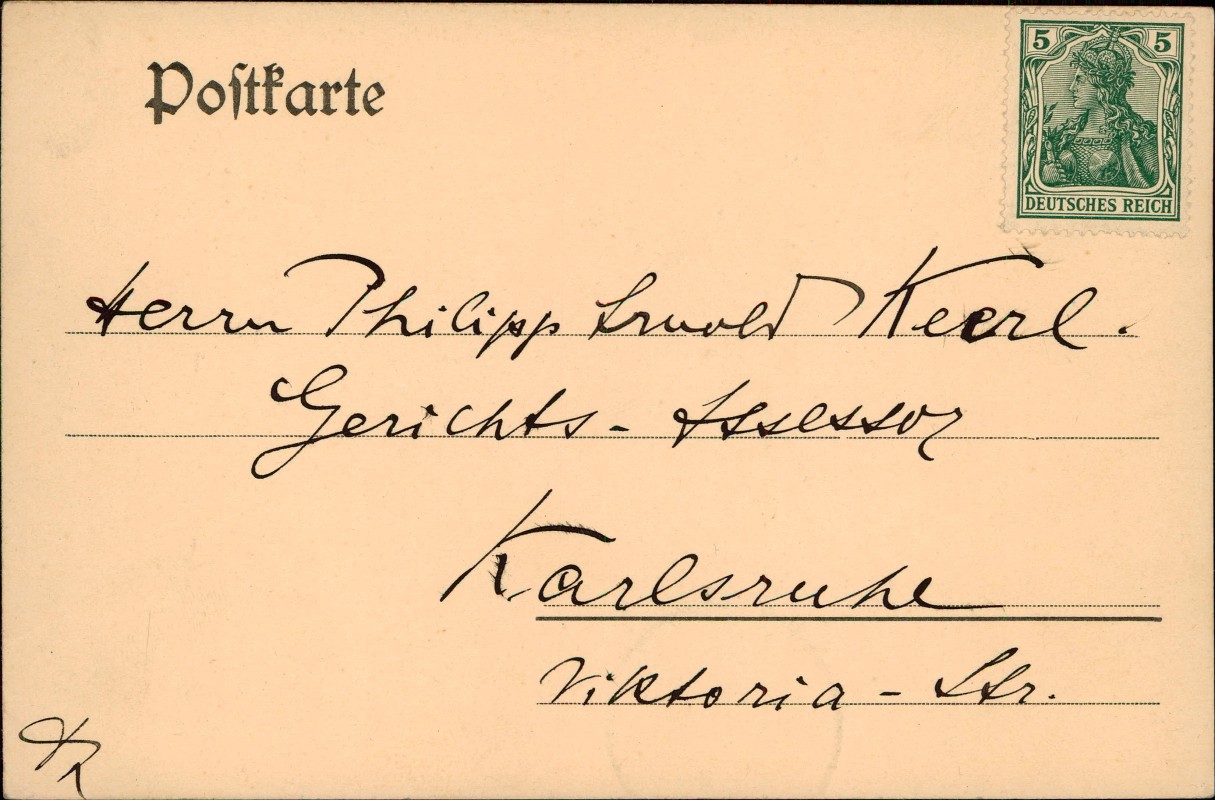 Postkarte
5 5
DEUTSCHES REICH
Herrn Philipp Arnold Keerl.
Gerichts - Assessor
Karlsruhe
Viktoria - Str.